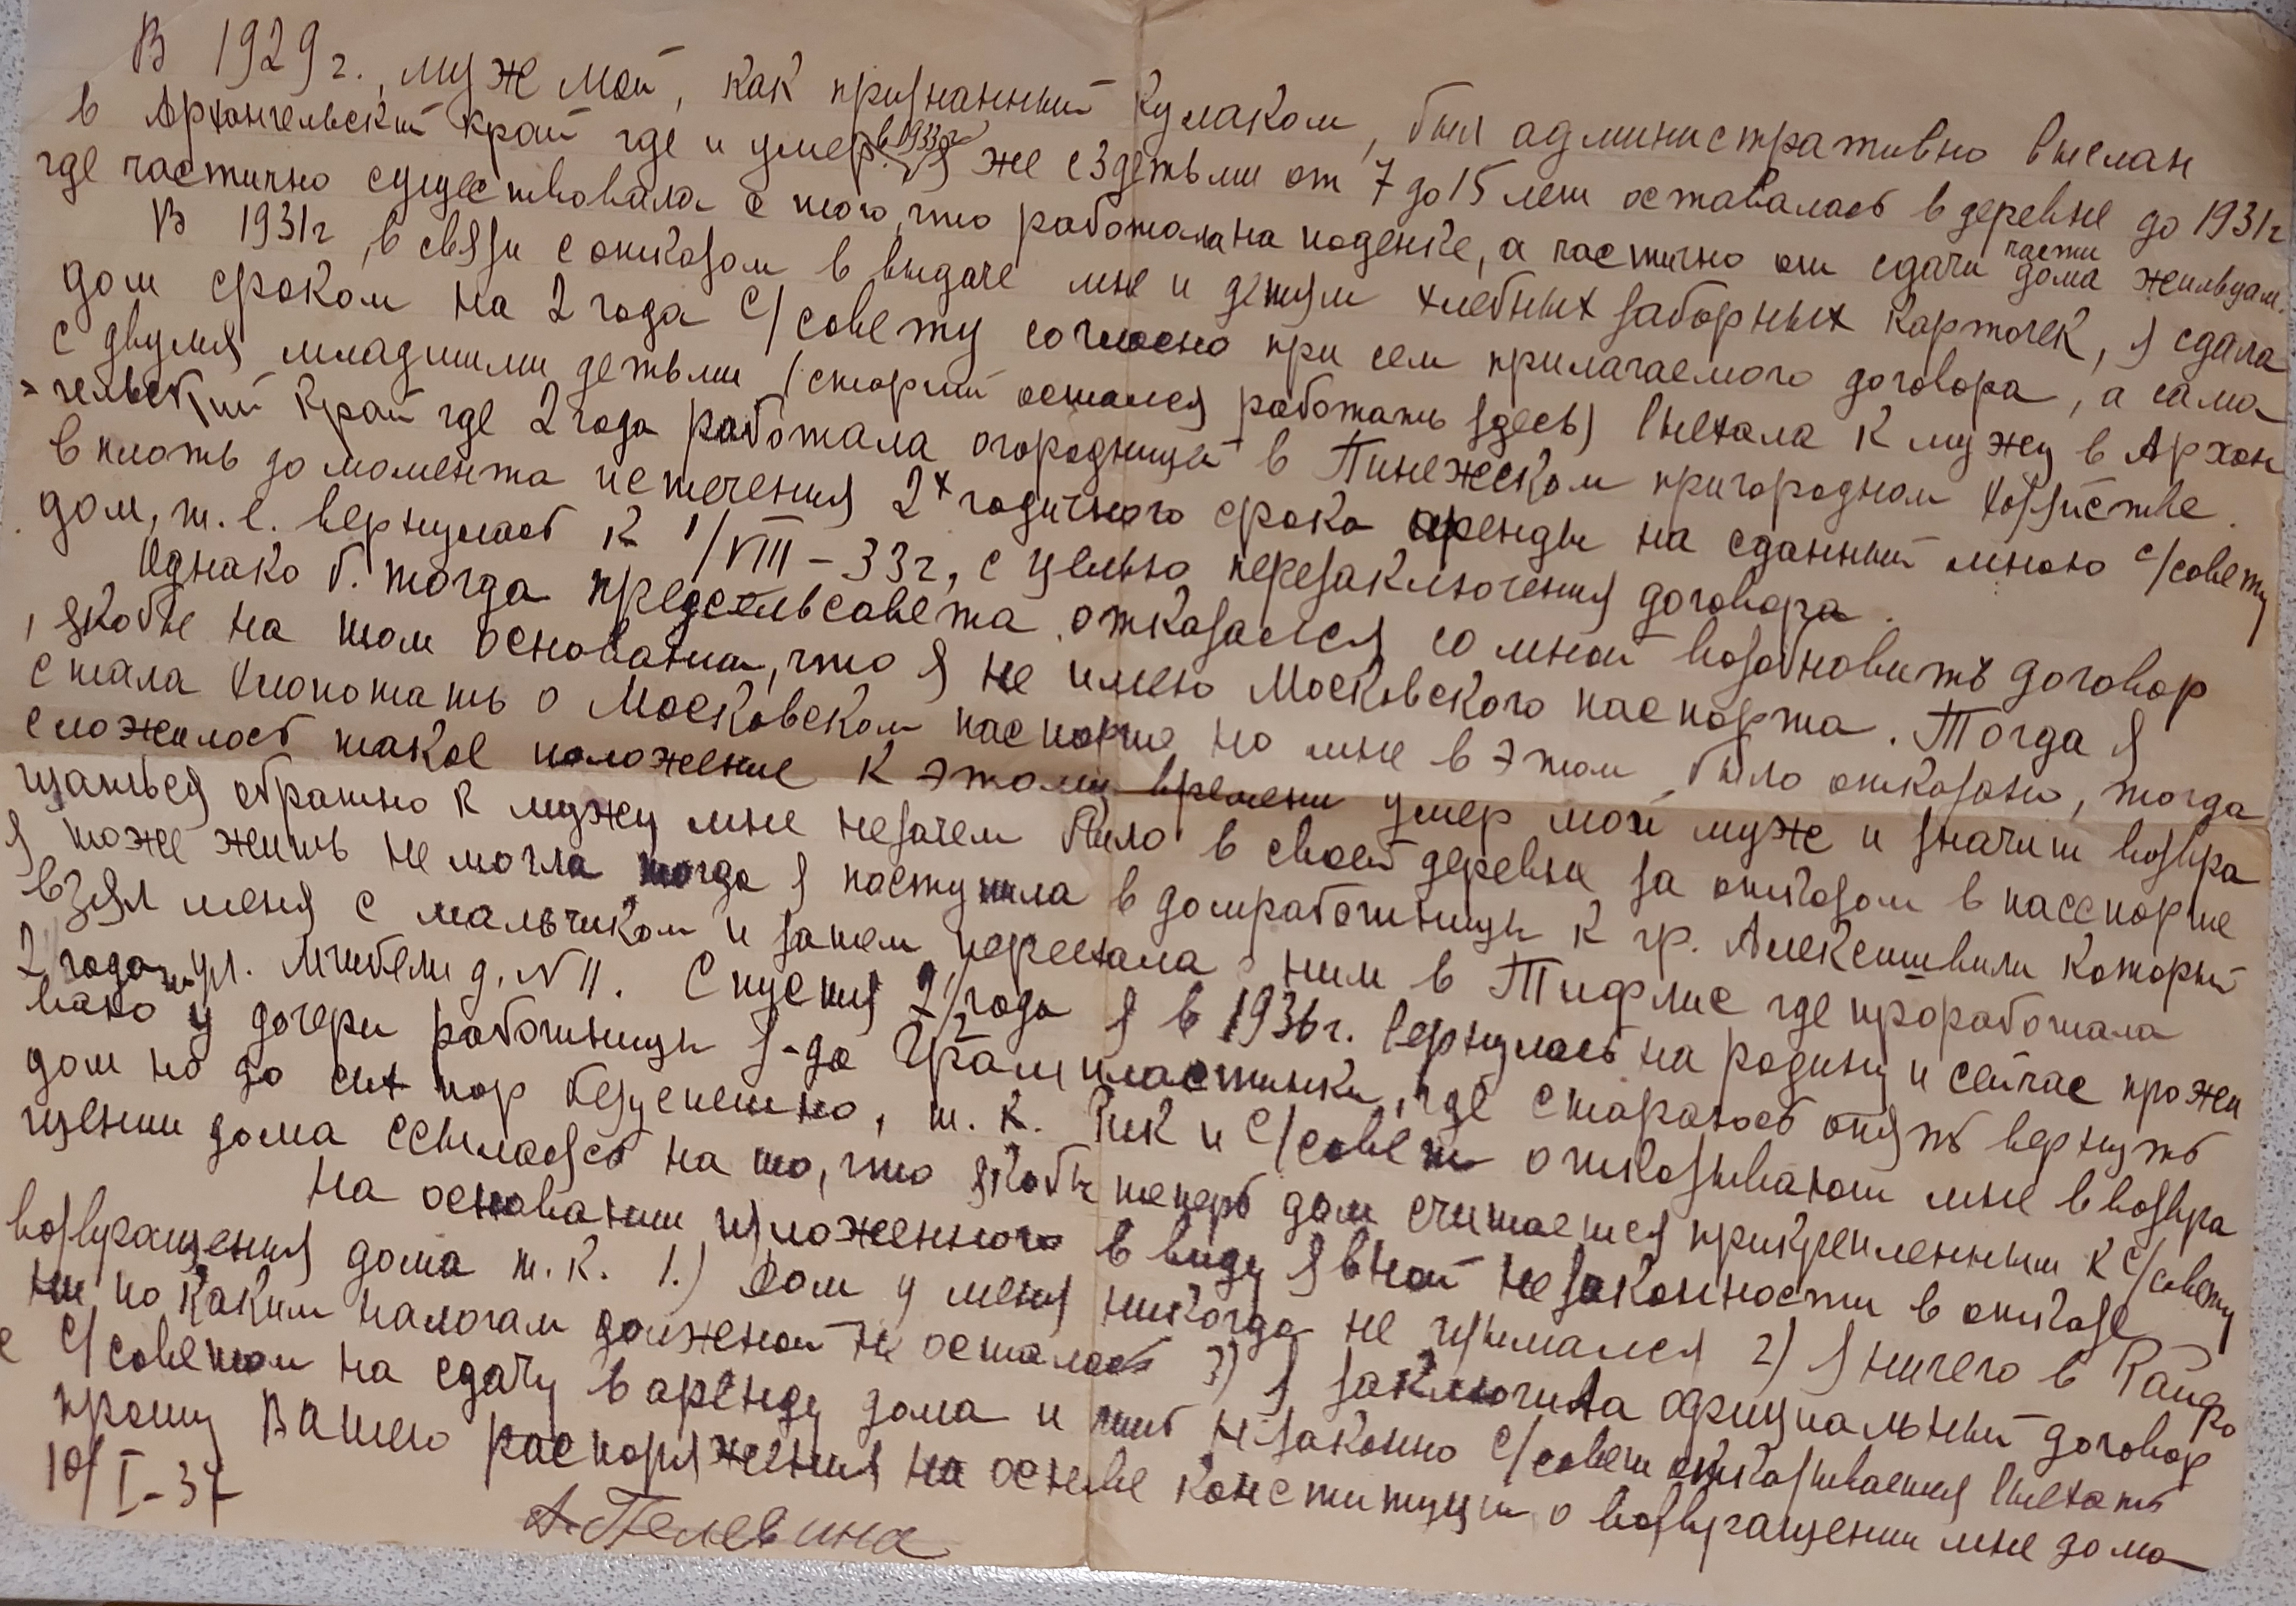 В 1929 г., муж мой, как признанный кулаком, был административно выслан
в Архангельский край где и умер в 1933 г. Я же с 3 детьми от 7 до 15 лет оставалась в деревне до 1931 г
где частично существовала с того, что работала на поденке, а частично от сдачи части дома жильцам.
В 1931 г, в связи с отказом в выдаче мне и детям хлебных заборных карточек, я сдала
дом сроком на 2 года с/совету согласно при сем прилагаемого договора, а сама
с двумя младшими детьми (старший остался работать здесь) выехала к мужу в Архан
гельский край где 2 года работала огородницей в Пинежском пригородном хозяйстве.
вплоть до момента истечения 2х годичного срока аренды на сданный мною с/совету
дом, т.е. вернулась к 1/VIII-33 г, с целью перезаключения договора.
Однако б. тогда предсельсовета отказался со мной возобновить договор
, якобы на том основании, что я не имею Московского паспорта. Тогда я
стала хлопотать о Московском паспорте но мне в этом было отказано, тогда
сложилось такое положение к этому времени умер мой муж и значит возвра
щаться обратно к мужу мне незачем было в своей деревне за отказом в пасспорте
я тоже жить не могла тогда я поступила в домработницы к гр. Алексишвили который
взял меня с мальчиком и затем переехала с ним в Тифлис где проработала
2 года на ул. Мчибели д. N 11. Спустя 2 1/2 года я в 1936 г. вернулась на родину и сейчас прожи
ваю у дочери работницы з-да Грампластинки, где стараюсь опять вернуть
дом но до сих пор безуспешно, т.к. Рик и с/совет отказывают мне в возвра
щении дома ссылаясь на то, что якобы теперь дом считается прикрепленным к с/совету
На основании изложенного в виду явной незаконности в отказе
возвращения дома т.к. 1.) дом у меня никогда не изымался 2) я ничего в Райфо
ни по каким налогам должной не осталась 3) я заключила официальный договор
с с/советом на сдачу в аренду дома и лишь незаконно с/совет отказывается выехать
прошу Вашего распоряжения на основе конституции о возвращении мне дома
10/I-37
А. Пелевина